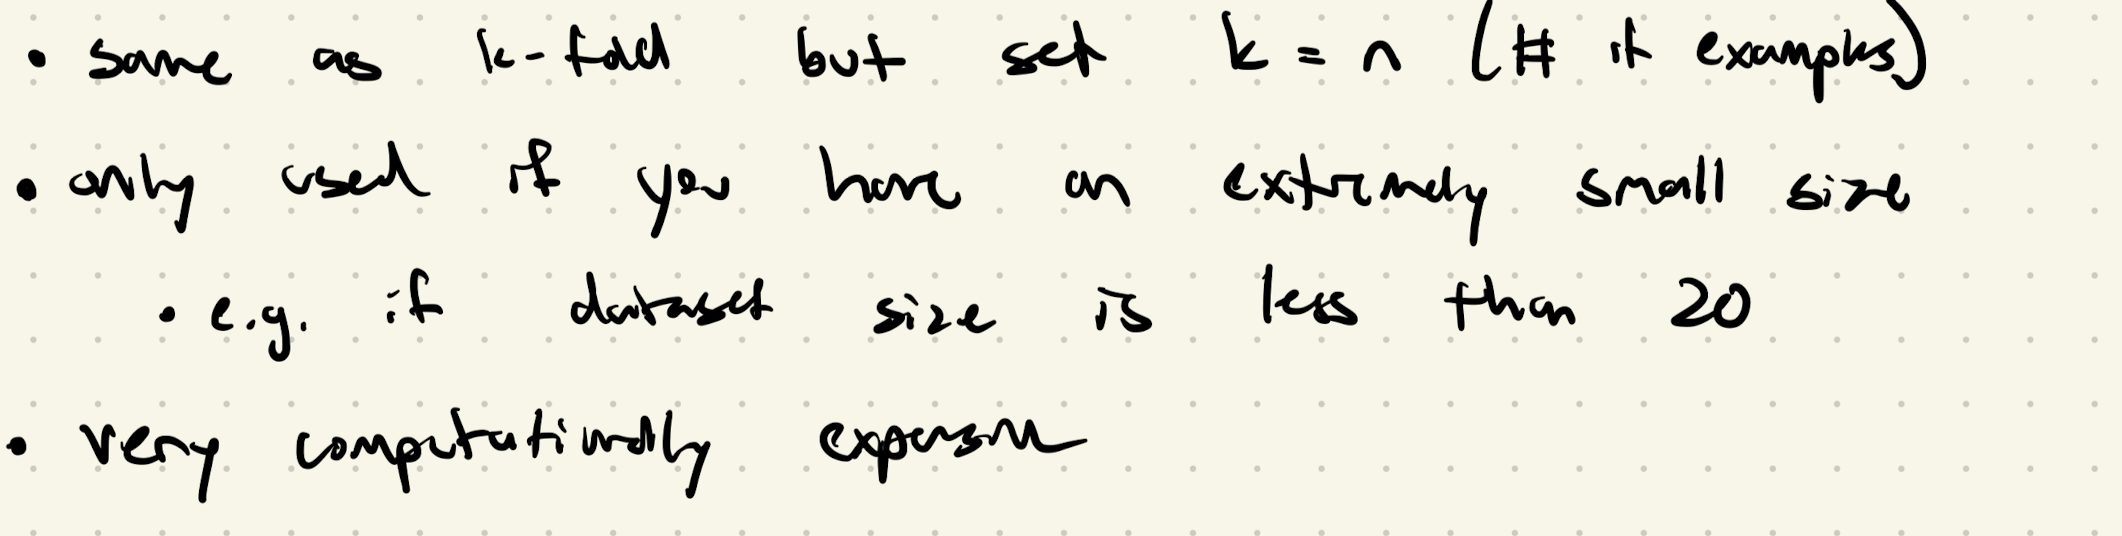 • same as k-fold but set k = n (# of examples)
• only used if you have an extremely small size
• e.g. if dataset size is less than 20
• very computationally expensive